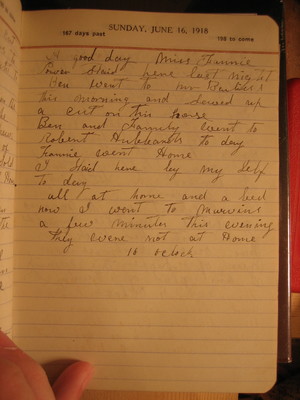 SUNDAY, JUNE 16, 1918
167 days past 198 to come
A good day Miss Fannie
Owen Staid here last night
Ben went to Mr
this morning and Sewed up
a cut on his horse
Ben and Family went to
Robert to day
Fannie went Home
I Staid here by my Self
to day
all at home and a bed
now I went to Marvins
a few minutes this evening
they were not at Home
10 oclock